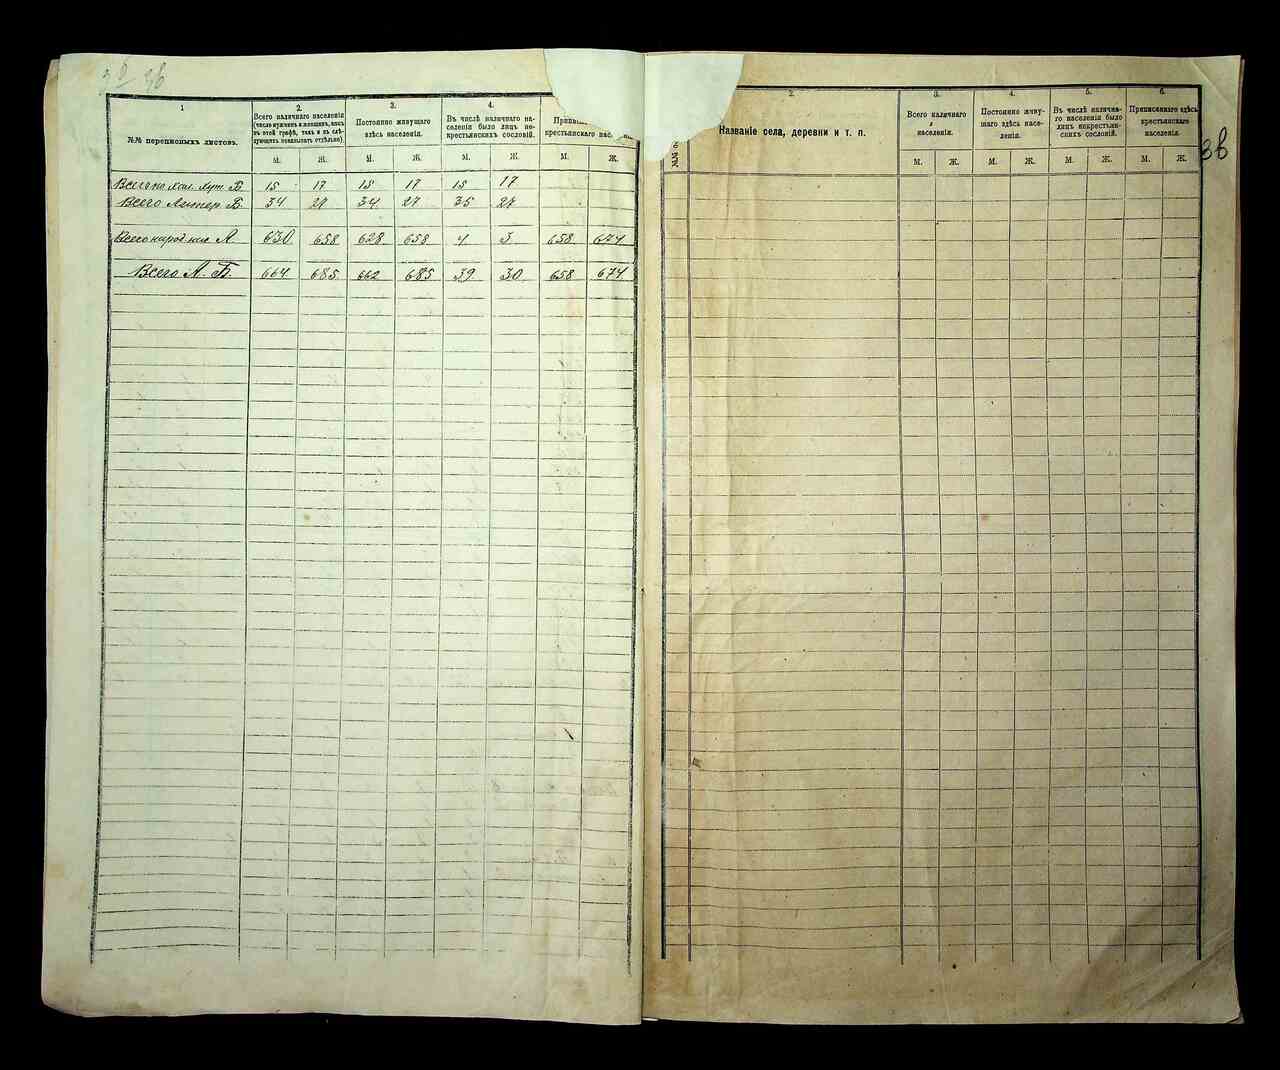 36
1
№№ переписныхъ листовъ.
2.
Всего наличнаго населенія
(число мужчинъ и женщинъ, какъ
въ этой графѣ, такъ и въ слѣ-
дующихъ показывать отдѣльно).
3.
Постоянно живущаго
здѣсь населенія.
4.
Въ числѣ наличнаго на-
селенія было лицъ не-
крестьянскихъ сословій.
крестьянскаго
М. Ж. М. Ж. М. Ж. М. Ж.
Всего по хут. Б. 15 17 15 17 15 17
Всего Б. 34 27 34 27 35 27
Всего А. 630 658 628 658 4 3 658 674
Всего А. Б. 664 685 662 685 39 30 658 674
2.
№№
Названіе села, деревни и т. п.
3.
Всего наличнаго
населенія.
4.
Постоянно живу-
щаго здѣсь насе-
ленія.
5.
Въ числѣ налична-
го населенія было
лицъ некрестьян-
скихъ сословій.
6.
Приписаннаго здѣсь
крестьянскаго
населенія.
М. Ж. М. Ж. М. Ж. М. Ж.